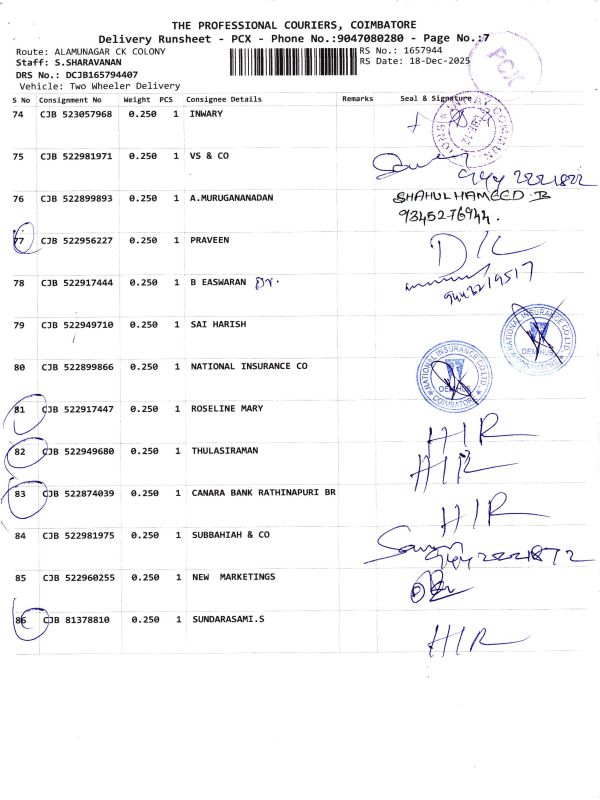 THE PROFESSIONAL COURIERS, COIMBATORE
Delivery Runsheet - PCX - Phone No.:9047080280 - Page No.:7
Route: ALAMUNAGAR CK COLONY RS No.: 1657944
Staff: S.SHARAVANAN RS Date: 18-Dec-2025
DRS No.: DCJB165794407
Vehicle: Two Wheeler Delivery
PCX
S No Consignment No Weight PCS Consignee Details Remarks Seal & Signature
74 CJB 523057968 0.250 1 INWARY
75 CJB 522981971 0.250 1 VS & CO
76 CJB 522899893 0.250 1 A.MURUGANANADAN SHAHUL HAMEED.B
9345276944.
77 CJB 522956227 0.250 1 PRAVEEN D/L
78 CJB 522917444 0.250 1 B EASWARAN Dr.
9443219517
79 CJB 522949710 0.250 1 SAI HARISH
NATIONAL INSURANCE CO LTD
80 CJB 522899866 0.250 1 NATIONAL INSURANCE CO
NATIONAL INSURANCE CO LTD
COIMBATORE
81 CJB 522917447 0.250 1 ROSELINE MARY H/R
82 CJB 522949680 0.250 1 THULASIRAMAN H/R
83 CJB 522874039 0.250 1 CANARA BANK RATHINAPURI BR H/R
84 CJB 522981975 0.250 1 SUBBAHIAH & CO
85 CJB 522960255 0.250 1 NEW MARKETINGS
86 CJB 81378810 0.250 1 SUNDARASAMI.S H/R